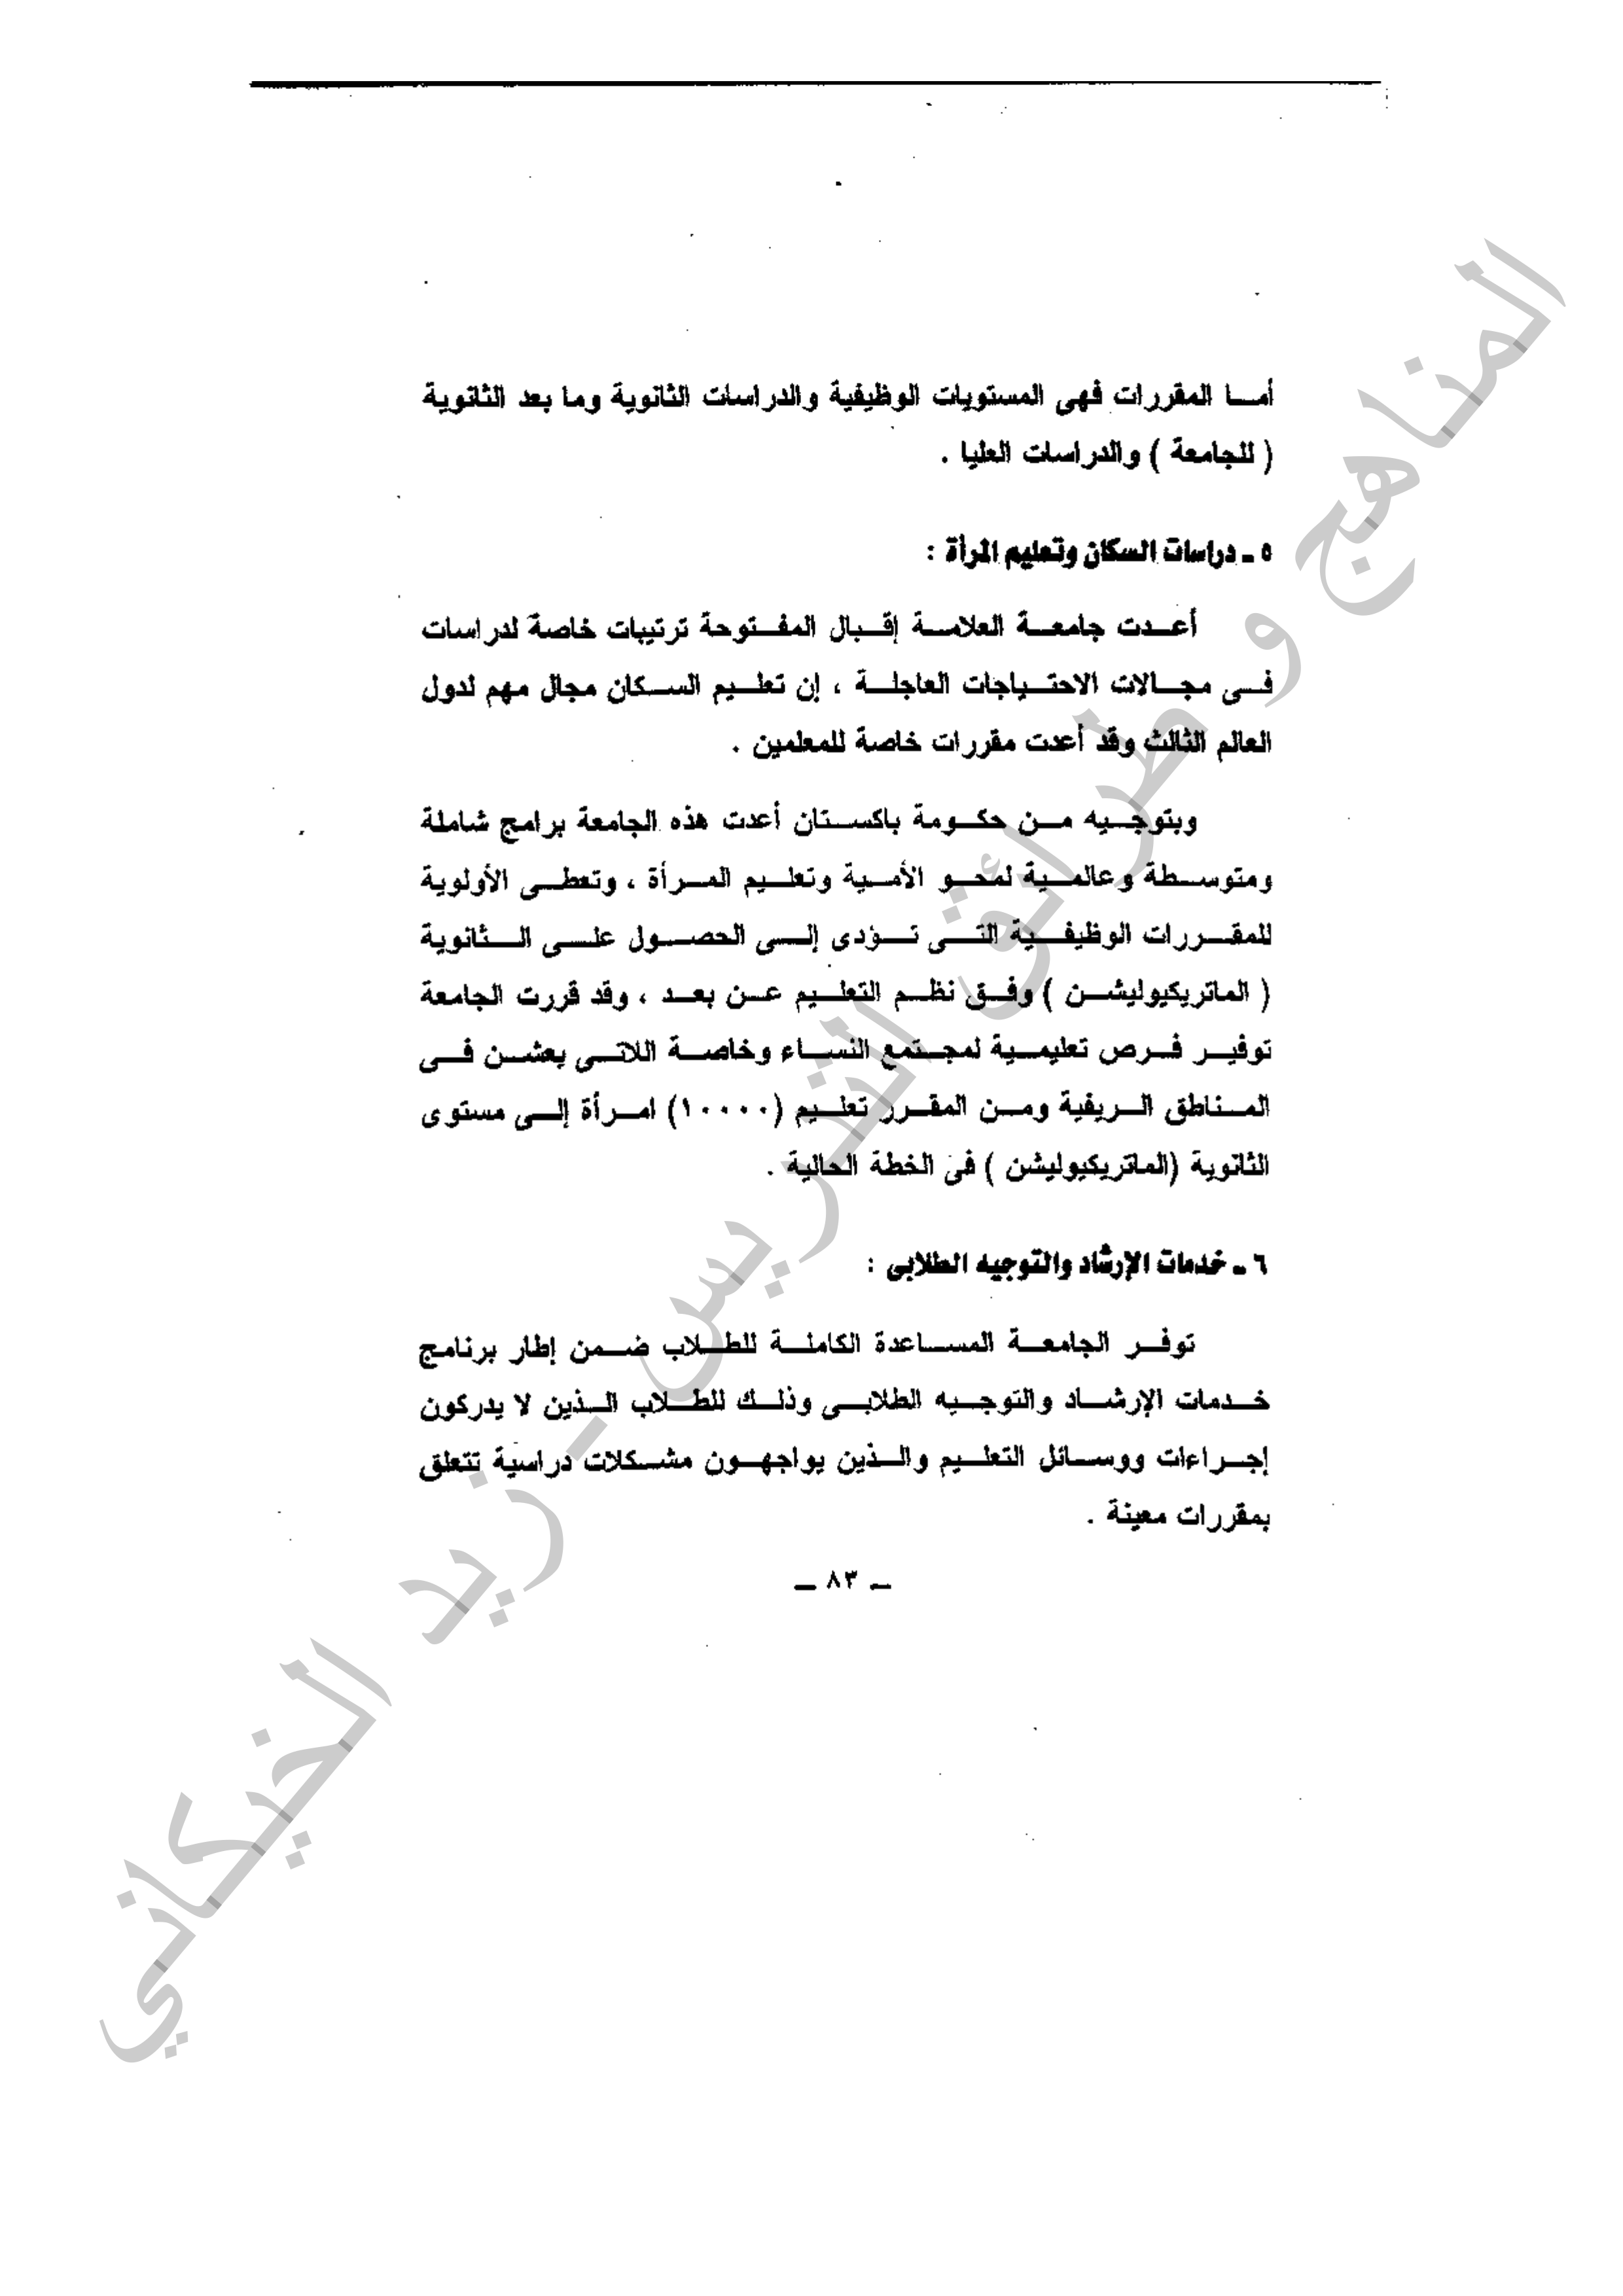 أما المقررات فهى المستويات الوظيفية والدراسات الثانوية وما بعد الثانوية
( للجامعة ) والدراسات العليا .
٥ ـ دراسات السكان وتعليم المرأة :
أعدت جامعة العلامة إقبال المفتوحة ترتيبات خاصة لدراسات
فى مجالات الاحتياجات العاجلة ، إن تعليم السكان مجال مهم لدول
العالم الثالث وقد أعدت مقررات خاصة للمعلمين .
وبتوجيه من حكومة باكستان أعدت هذه الجامعة برامج شاملة
ومتوسطة وعالمية لمحو الأمية وتعليم المرأة ، وتعطى الأولوية
للمقررات الوظيفية التى تؤدى إلى الحصول على الثانوية
( الماتريكيوليشن ) وفق نظم التعليم عن بعد ، وقد قررت الجامعة
توفير فرص تعليمية لمجتمع النساء وخاصة اللاتى يعشن فى
المناطق الريفية ومن المقرر تعليم (١٠٠٠٠) امرأة إلى مستوى
الثانوية (الماتريكيوليشن ) فى الخطة الحالية .
٦ ـ خدمات الإرشاد والتوجيه الطلابى :
توفر الجامعة المساعدة الكاملة للطلاب ضمن إطار برنامج
خدمات الإرشاد والتوجيه الطلابى وذلك للطلاب الذين لا يدركون
إجراءات ووسائل التعليم والذين يواجهون مشكلات دراسية تتعلق
بمقررات معينة .
ــ ٨٣ ــ
المناهج وطرائق التدريس - زيد الخيكاني